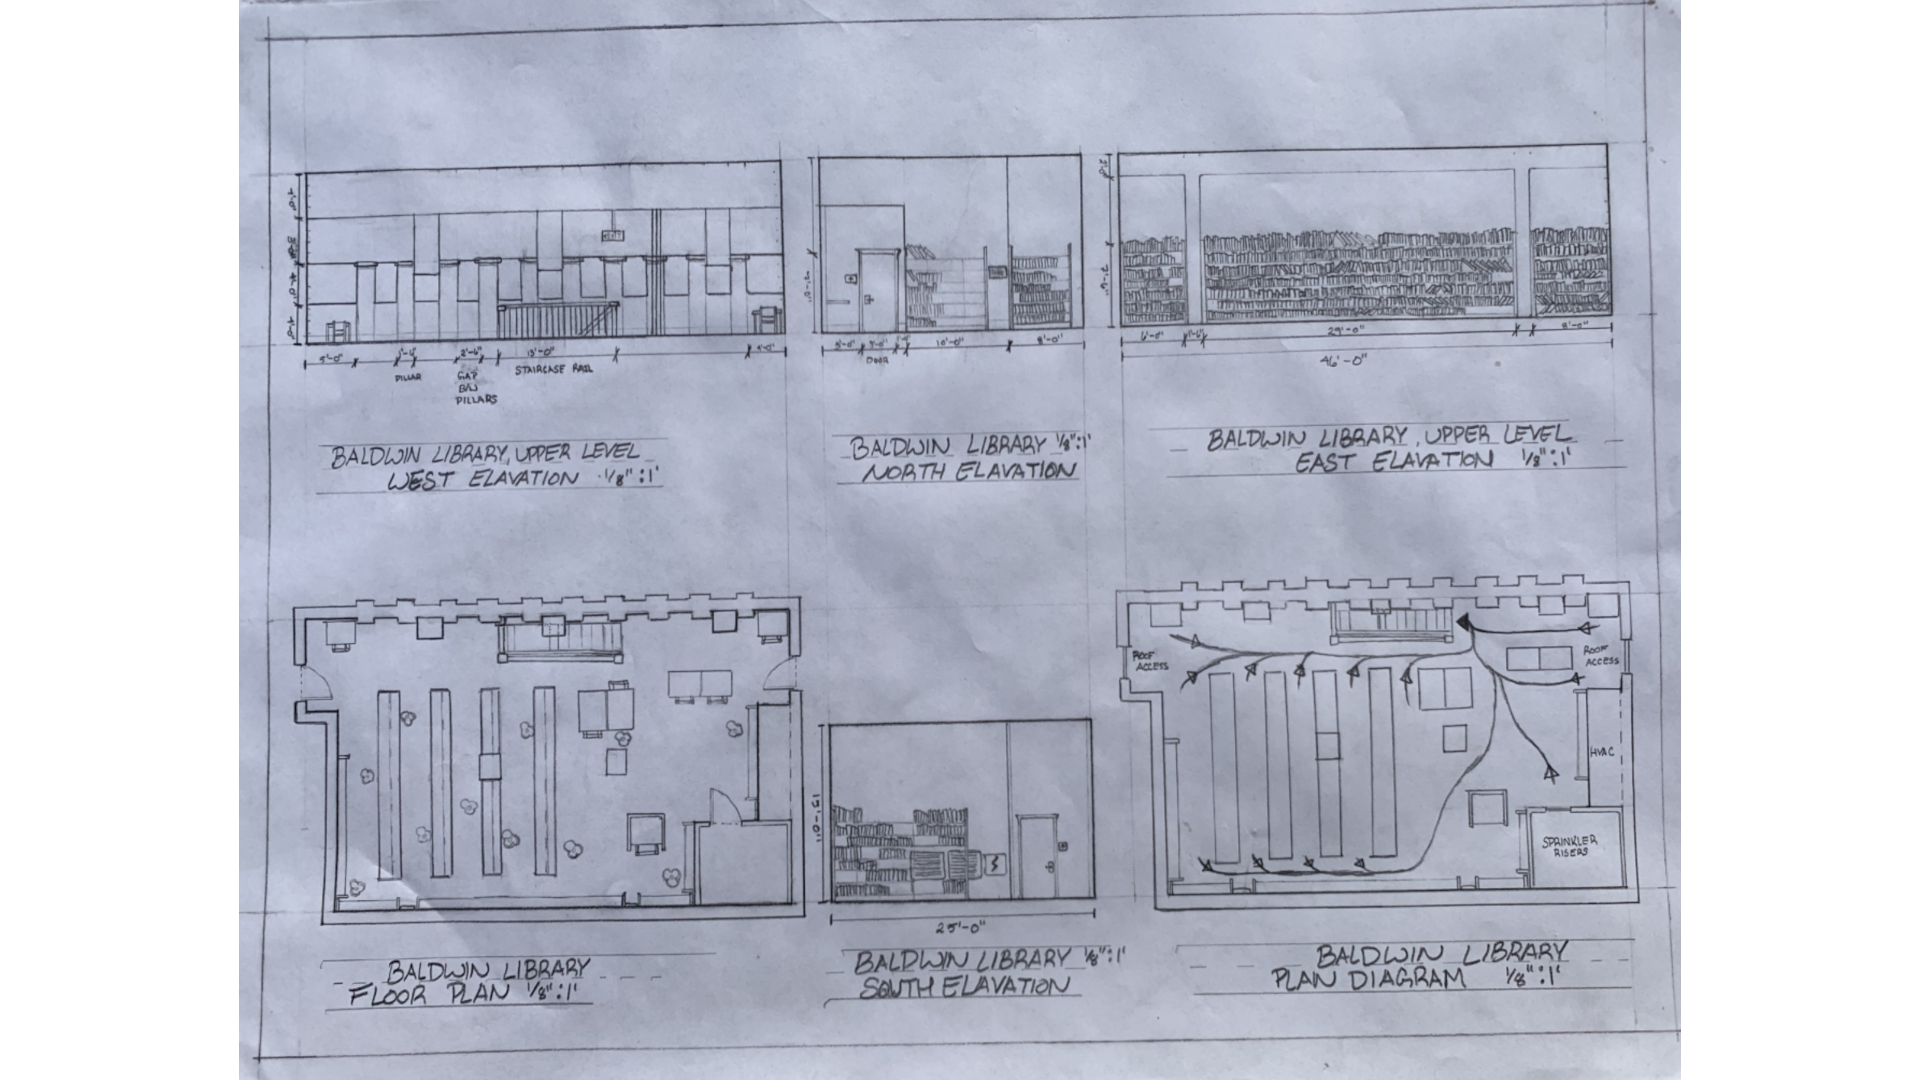 5'-0"
1'-6"
2'-6"
13'-0"
4'-0"
PILLAR
GAP
B/W
PILLARS
STAIRCASE RAIL
BALDWIN LIBRARY, UPPER LEVEL
WEST ELAVATION 1/8":1'
DOOR
10'-0"
8'-0"
BALDWIN LIBRARY 1/8":1'
NORTH ELAVATION
2'-0"
6'-0"
1'-6"
29'-0"
8'-0"
46'-0"
BALDWIN LIBRARY, UPPER LEVEL
EAST ELAVATION 1/8":1'
BALDWIN LIBRARY
FLOOR PLAN 1/8":1'
13'-0"
25'-0"
BALDWIN LIBRARY 1/8":1'
SOUTH ELAVATION
ROOF
ACCESS
ROOF
ACCESS
HVAC
SPRINKLER
RISERS
BALDWIN LIBRARY
PLAN DIAGRAM 1/8":1'